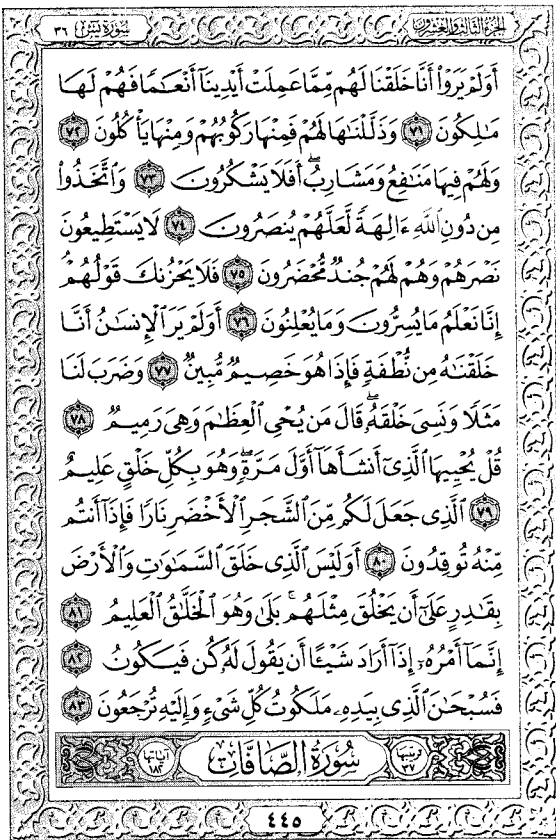 الجزء الثالث والعشرون
سورة يس ٣٦
أَوَلَمْ يَرَوْا۟ أَنَّا خَلَقْنَا لَهُم مِّمَّا عَمِلَتْ أَيْدِينَآ أَنْعَـٰمًا فَهُمْ لَهَا
مَـٰلِكُونَ ٧١ وَذَلَّلْنَـٰهَا لَهُمْ فَمِنْهَا رَكُوبُهُمْ وَمِنْهَا يَأْكُلُونَ ٧٢
وَلَهُمْ فِيهَا مَنَـٰفِعُ وَمَشَارِبُ ۖ أَفَلَا يَشْكُرُونَ ٧٣ وَٱتَّخَذُوا۟
مِن دُونِ ٱللَّهِ ءَالِهَةً لَّعَلَّهُمْ يُنصَرُونَ ٧٤ لَا يَسْتَطِيعُونَ
نَصْرَهُمْ وَهُمْ لَهُمْ جُندٌ مُّحْضَرُونَ ٧٥ فَلَا يَحْزُنكَ قَوْلُهُمْ ۘ
إِنَّا نَعْلَمُ مَا يُسِرُّونَ وَمَا يُعْلِنُونَ ٧٦ أَوَلَمْ يَرَ ٱلْإِنسَـٰنُ أَنَّا
خَلَقْنَـٰهُ مِن نُّطْفَةٍ فَإِذَا هُوَ خَصِيمٌ مُّبِينٌ ٧٧ وَضَرَبَ لَنَا
مَثَلًا وَنَسِىَ خَلْقَهُۥ ۖ قَالَ مَن يُحْىِ ٱلْعِظَـٰمَ وَهِىَ رَمِيمٌ ٧٨
قُلْ يُحْيِيهَا ٱلَّذِىٓ أَنشَأَهَآ أَوَّلَ مَرَّةٍ ۖ وَهُوَ بِكُلِّ خَلْقٍ عَلِيمٌ
٧٩ ٱلَّذِى جَعَلَ لَكُم مِّنَ ٱلشَّجَرِ ٱلْأَخْضَرِ نَارًا فَإِذَآ أَنتُم
مِّنْهُ تُوقِدُونَ ٨٠ أَوَلَيْسَ ٱلَّذِى خَلَقَ ٱلسَّمَـٰوَٰتِ وَٱلْأَرْضَ
بِقَـٰدِرٍ عَلَىٰٓ أَن يَخْلُقَ مِثْلَهُم ۚ بَلَىٰ وَهُوَ ٱلْخَلَّـٰقُ ٱلْعَلِيمُ ٨١
إِنَّمَآ أَمْرُهُۥٓ إِذَآ أَرَادَ شَيْـًٔا أَن يَقُولَ لَهُۥ كُن فَيَكُونُ ٨٢
فَسُبْحَـٰنَ ٱلَّذِى بِيَدِهِۦ مَلَكُوتُ كُلِّ شَىْءٍ وَإِلَيْهِ تُرْجَعُونَ ٨٣
ترتيبها ٣٧ سُورَةُ الصَّافَّاتِ آياتها ١٨٢
٤٤٥